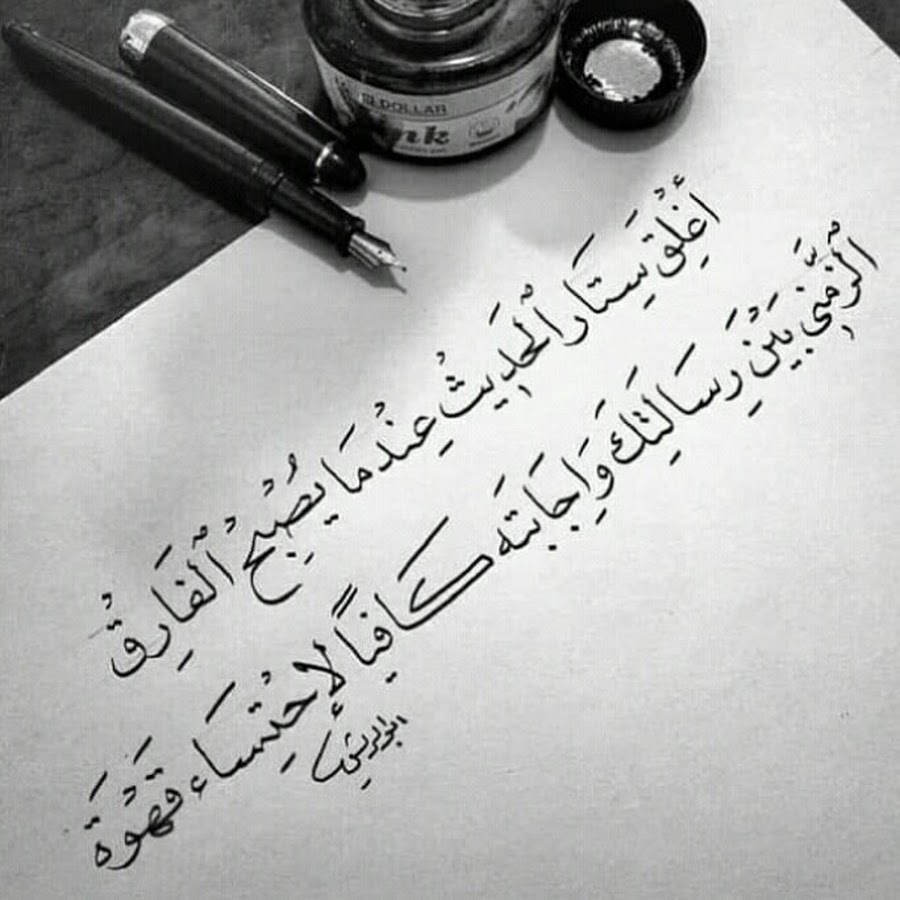 DOLLAR
Ink
أغْلِق سِتَار ٱلْحَدِيثْ عِنْدمَا يُصْبِحُ ٱلْفَارِقْ
ٱلْزمَّنِي بَيْنِ رِسَالتِكَ وَاِجَابَته كَافيًا لإحْتِسَاء قَهْوَة